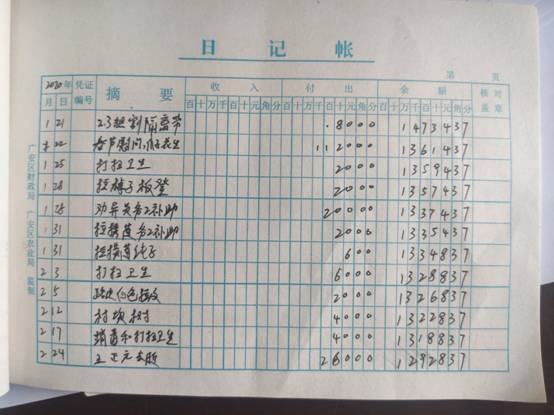 日 记 帐
第 页
2020年 凭证编号 摘 要 收 入 付 出 余 额 核对盖章
月 日 百十万千百十元角分 百十万千百十元角分 百十万千百十元角分
1 21 2.3组割隔离带 8000 1473437
1 22 春节慰问, 卫生 112000 1361437
1 25 打扫卫生 2000 1359437
1 28 板凳 2000 1357437
1 28 务工补助 20000 1337437
1 31 务工补助 2000 1335437
1 31 绳子 600 1334837
2 3 打扫卫生 6000 1328837
2 5 2000 1326837
2 12 树 4000 1322837
2 17 消毒和打扫卫生 4000 1318837
2 24 26000 1292837
广安区财政局 广安区农业局 监制